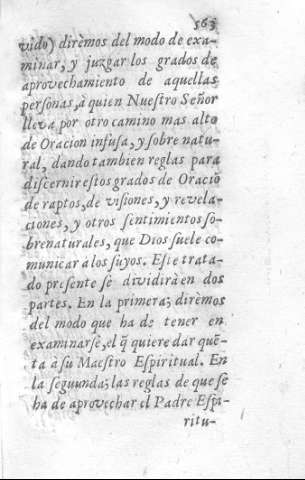 563
vido) dirèmos del modo de exa-
minar, y juzgar los grados de
aprovechamiento de aquellas
personas, à quien Nuestro Señor
lleva por otro camino mas alto
de Oracion infusa, y sobre natu-
ral, dando tambien reglas para
discernir estos grados de Oraciõ
de raptos, de visiones, y revela-
ciones, y otros sentimientos so-
brenaturales, que Dios suele co-
municar à los suyos. Este trata-
do presente se dividirà en dos
partes. En la primera; dirèmos
del modo que ha de tener en
examinarse, el q̃ quiere dar quẽ-
ta à su Maestro Espiritual. En
la seguunda; las reglas de que se
ha de aprovechar el Padre Espi-
ritu-